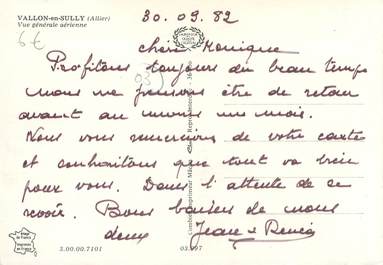 VALLON-en-SULLY (Allier)
Vue générale aérienne
30.09.82
6€
chère Monique
Profitons toujours du beau temps
03
nous ne pensons être de retour
avant au moins un mois.
Nous vous remercions de votre carte
et souhaitons que tout va bien
pour vous. Dans l'attente de se
revoir. Bons baisers de nous
deux Jean &
3.00.00.7101